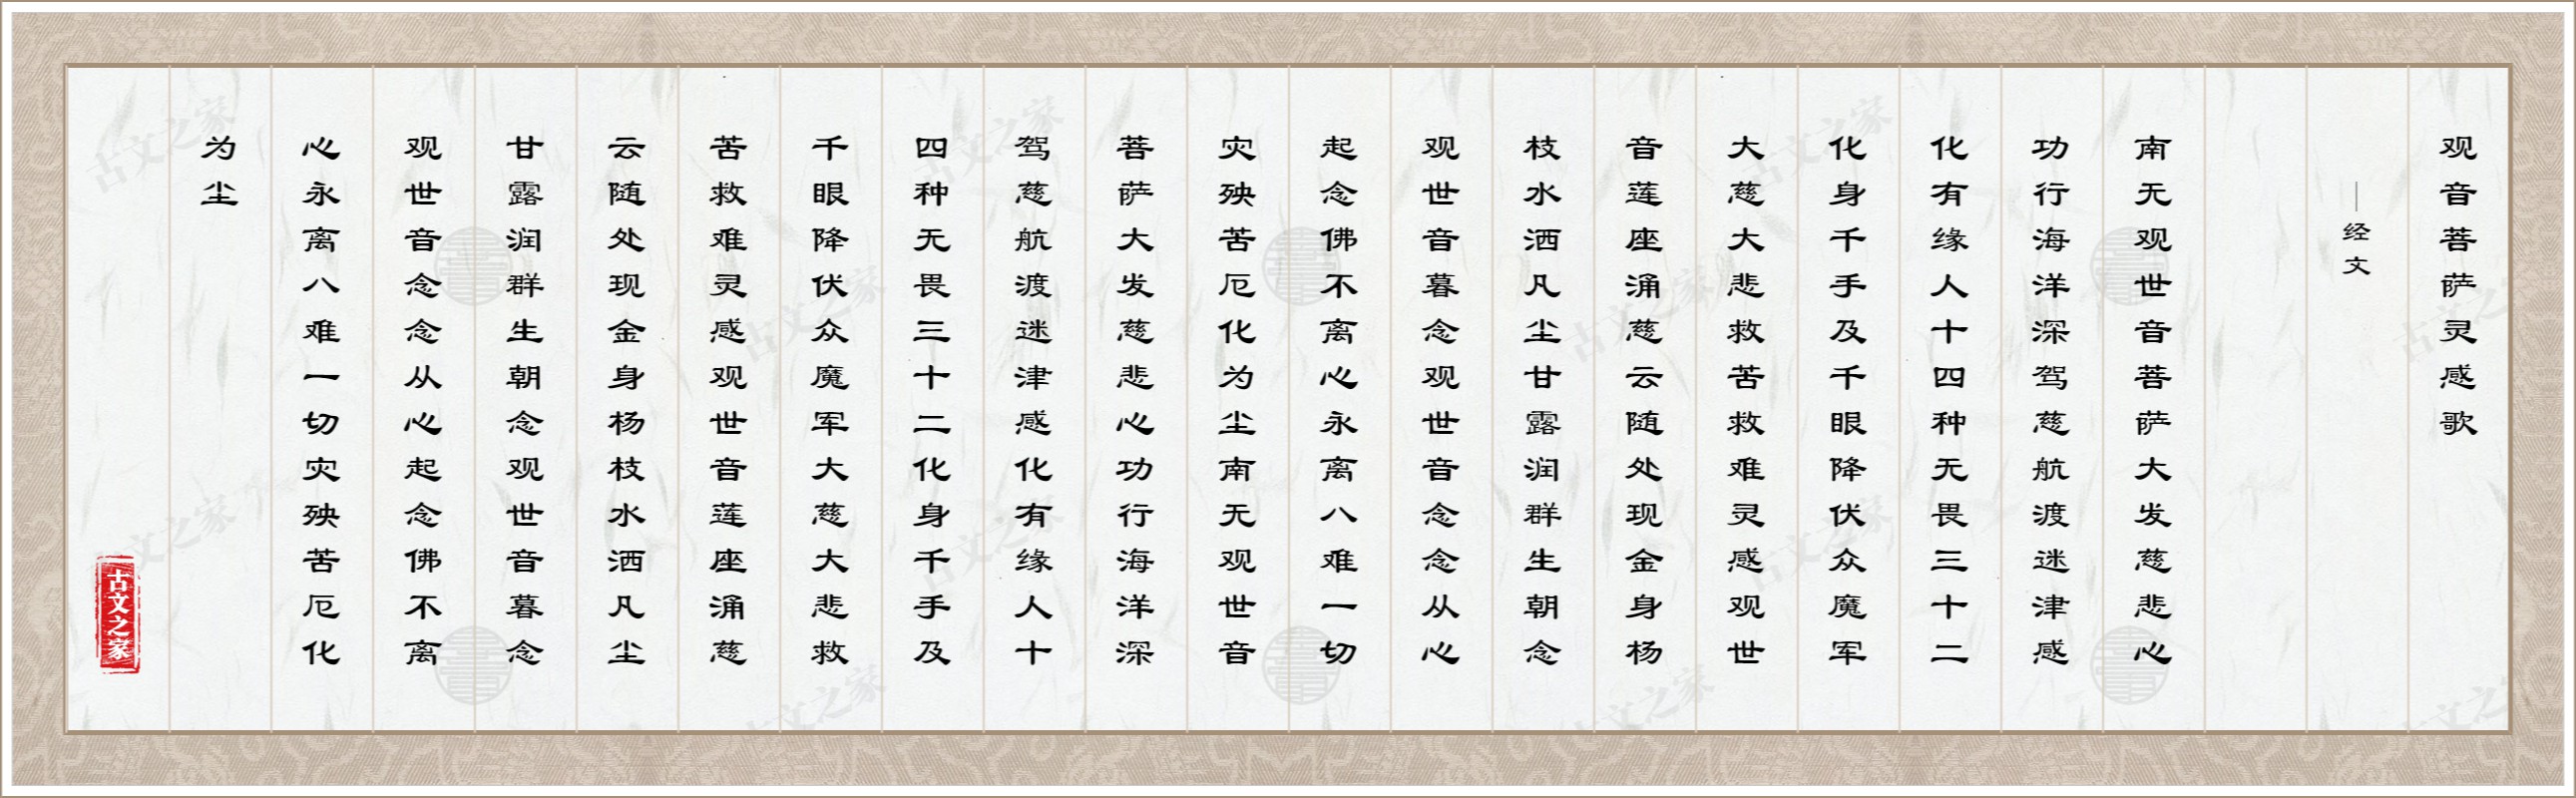 观音菩萨灵感歌
—经文
南无观世音菩萨大发慈悲心
功行海洋深驾慈航渡迷津感
化有缘人十四种无畏三十二
化身千手及千眼降伏众魔军
大慈大悲救苦救难灵感观世
音莲座涌慈云随处现金身杨
枝水洒凡尘甘露润群生朝念
观世音暮念观世音念念从心
起念佛不离心永离八难一切
灾殃苦厄化为尘南无观世音
菩萨大发慈悲心功行海洋深
驾慈航渡迷津感化有缘人十
四种无畏三十二化身千手及
千眼降伏众魔军大慈大悲救
苦救难灵感观世音莲座涌慈
云随处现金身杨枝水洒凡尘
甘露润群生朝念观世音暮念
观世音念念从心起念佛不离
心永离八难一切灾殃苦厄化
为尘
古文之家